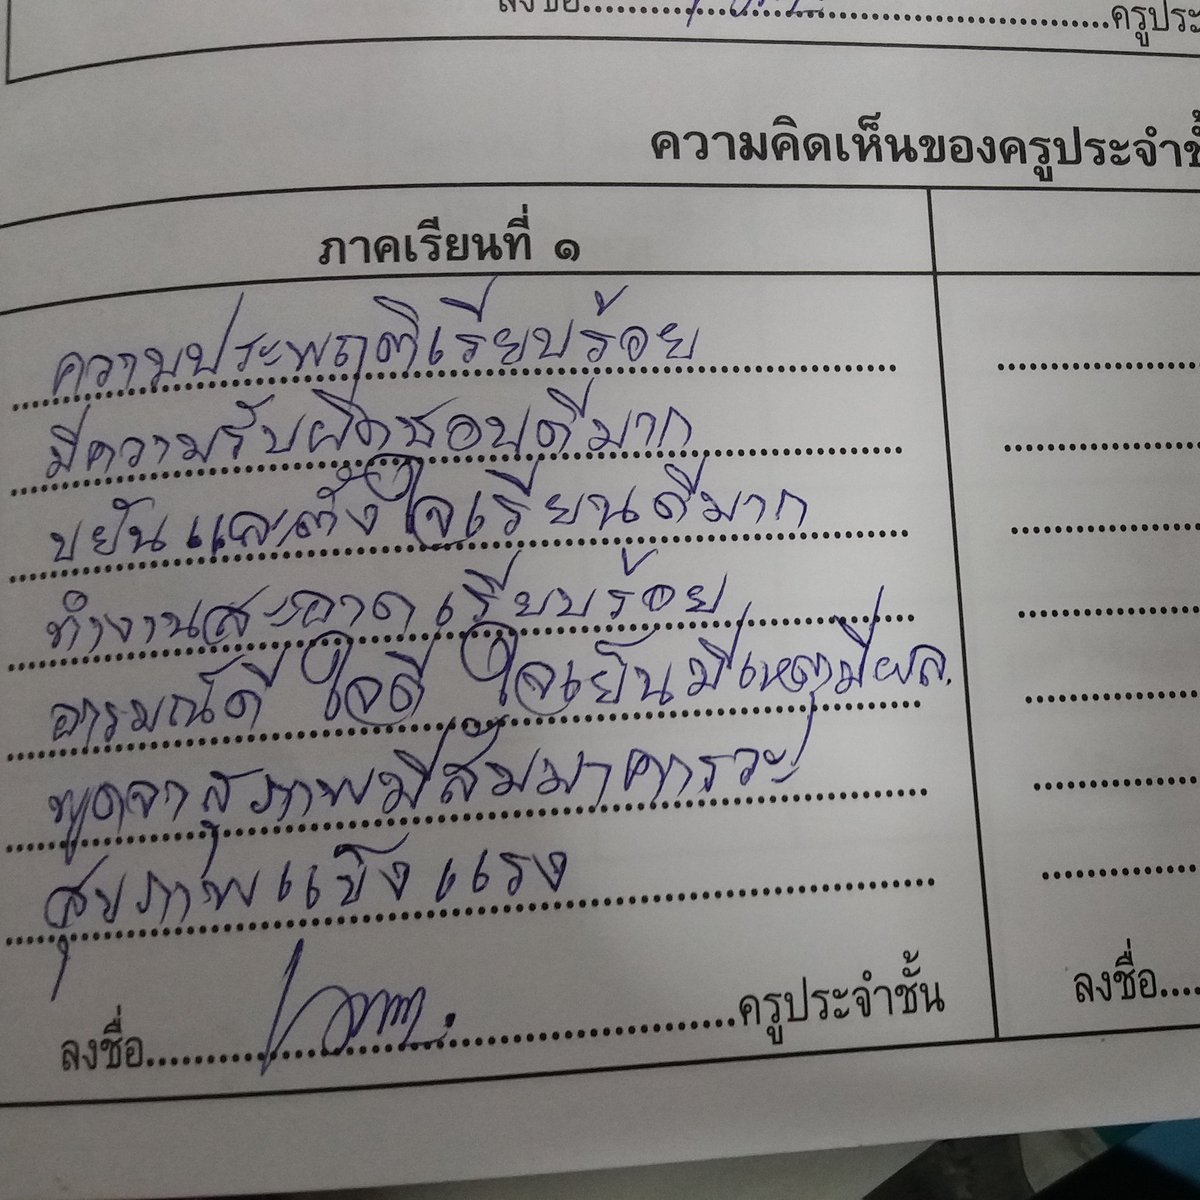 ลงชื่อ..........ครูประ
ความคิดเห็นของครูประจำชั้
ภาคเรียนที่ ๑
ความประพฤติเรียบร้อย
มีความรับผิดชอบดีมาก
ขยันและตั้งใจเรียนดีมาก
ทำงานสะอาดเรียบร้อย
อารมณ์ดี ใจดี ใจเย็นมีเหตุมีผล.
พูดจาสุภาพมีสัมมาคารวะ
สุขภาพแข็งแรง
ลงชื่อ..........ครูประจำชั้น
ลงชื่อ....